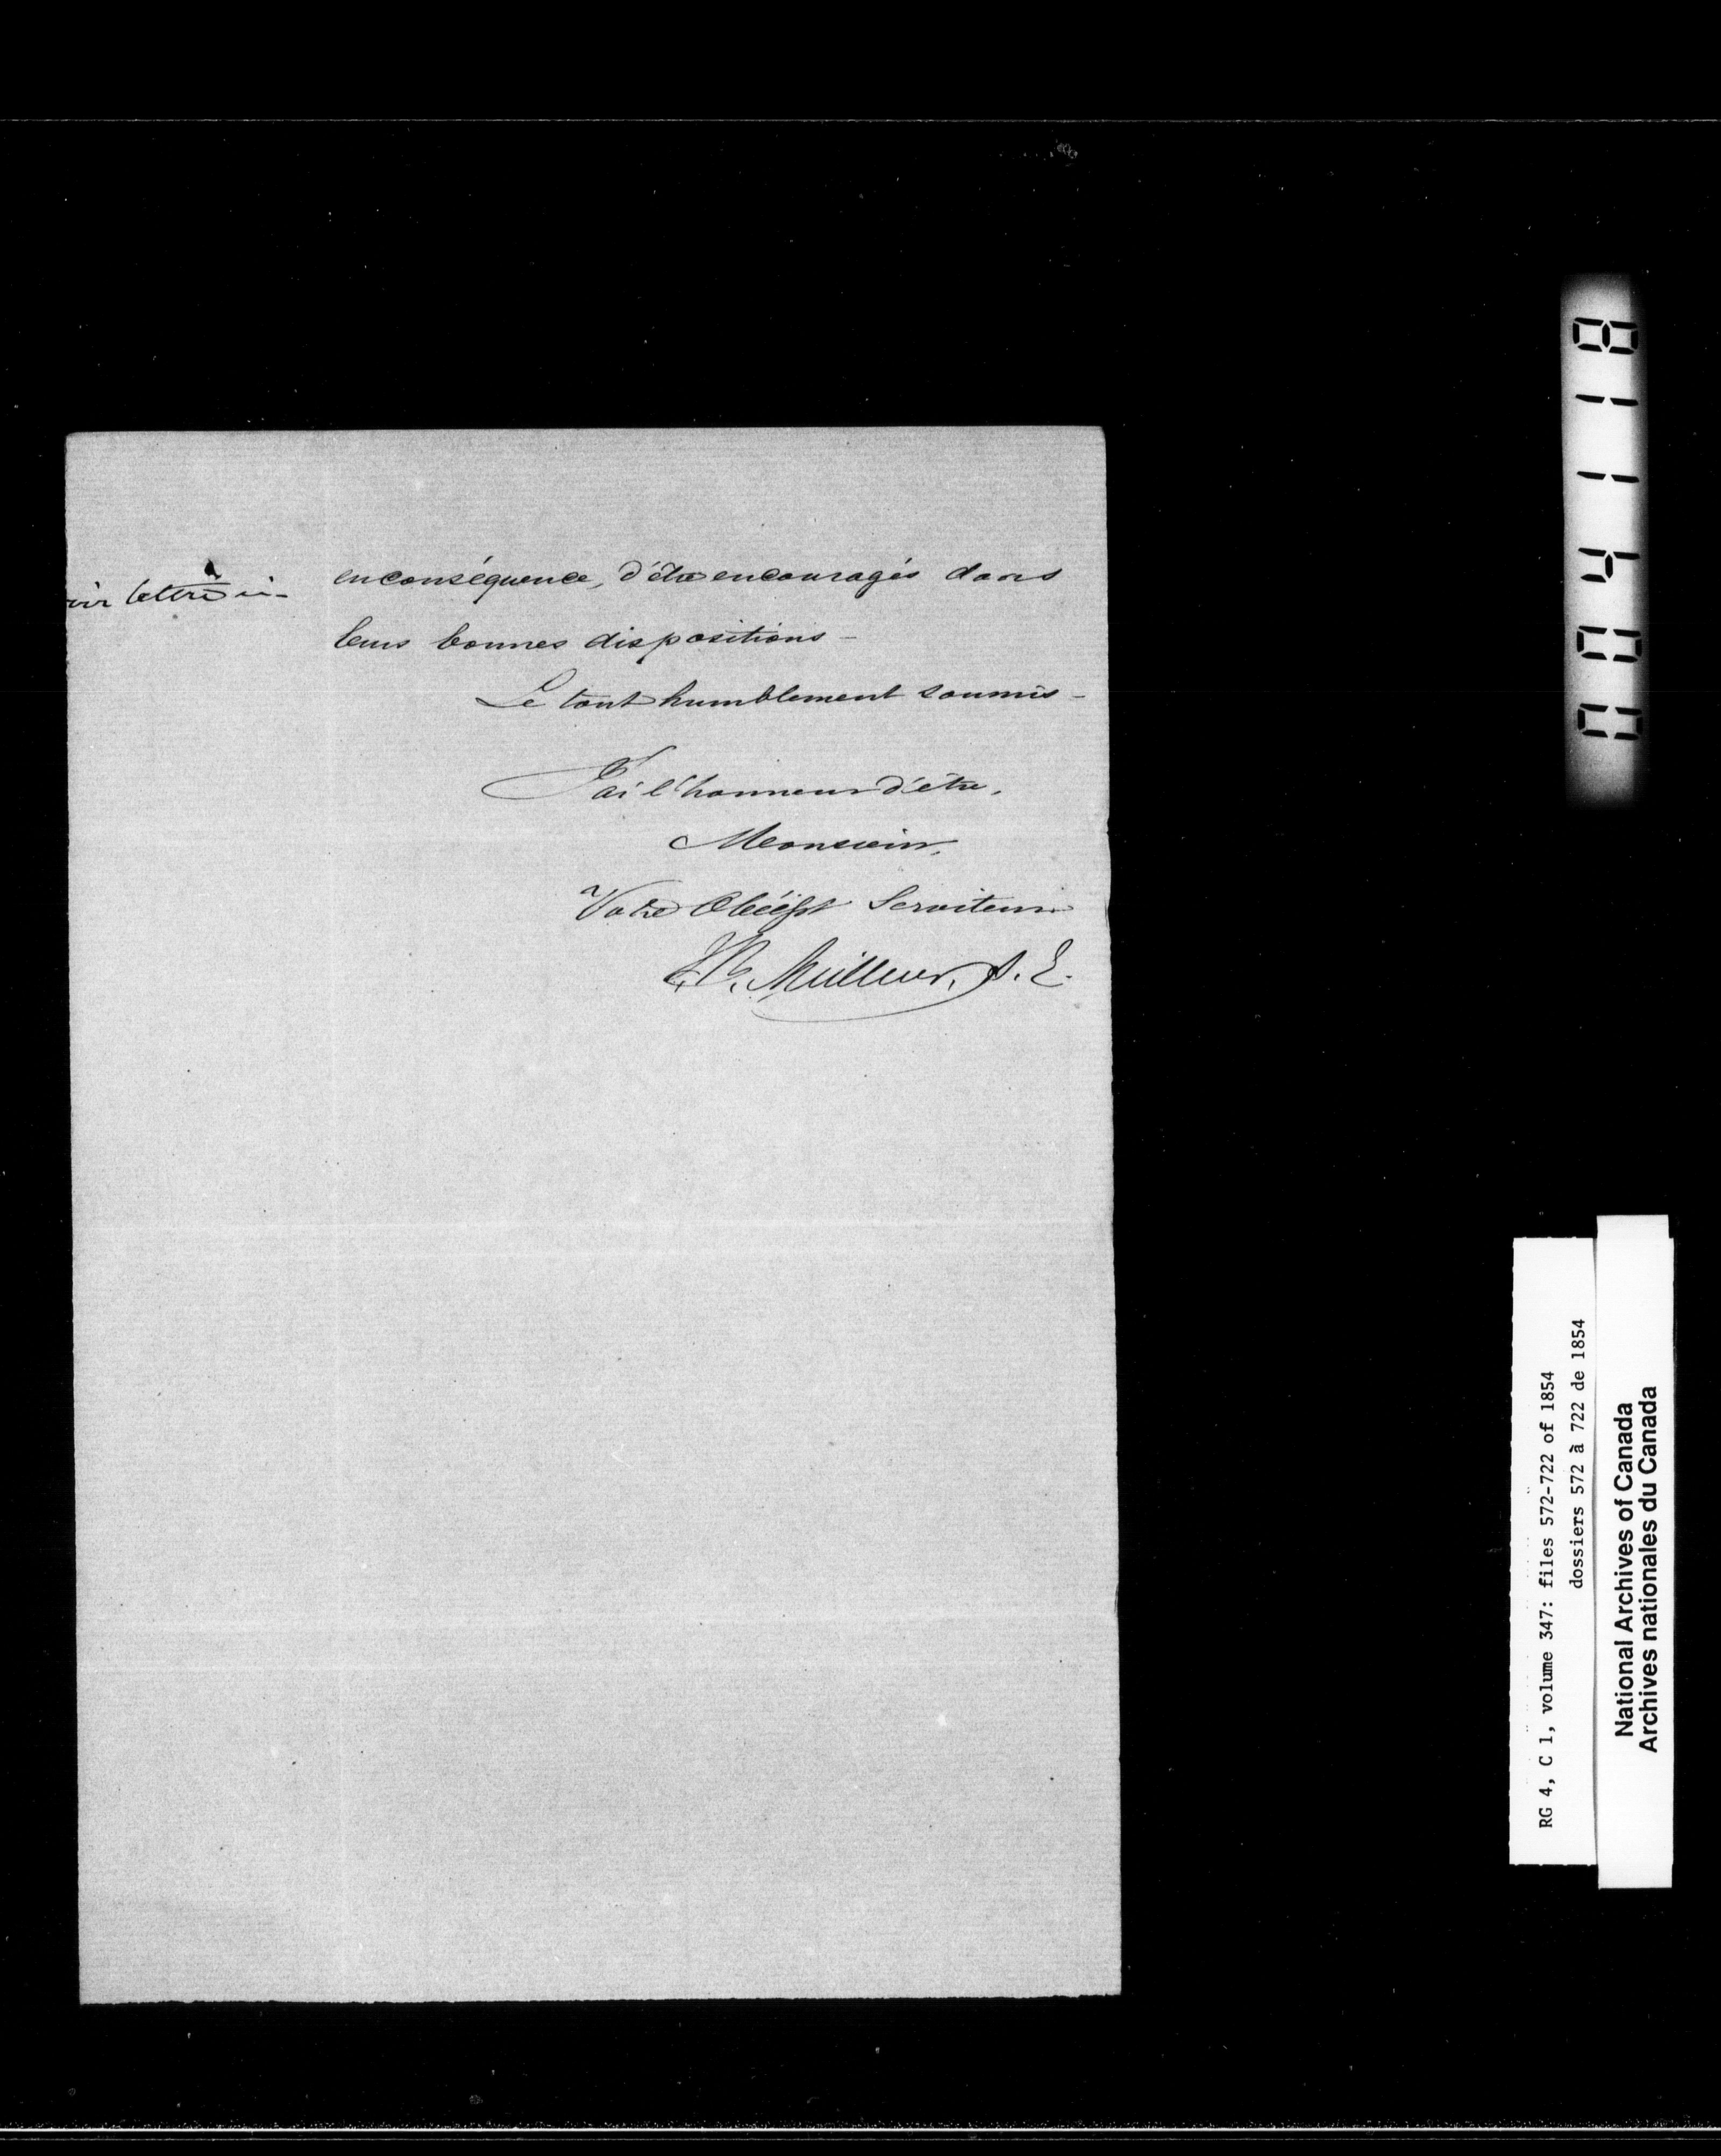 lettre
enconséquence, d'être encouragés dans
leurs bonnes dispositions –
Le tout humblement soumis –
J'ai l'honneur d'être,
Monsieur,
Votre Obéisst Serviteur
J.B. Meilleur, S. E.
004118
RG 4, C 1, volume 347: files 572-722 of 1854
dossiers 572 à 722 de 1854
National Archives of Canada
Archives nationales du Canada